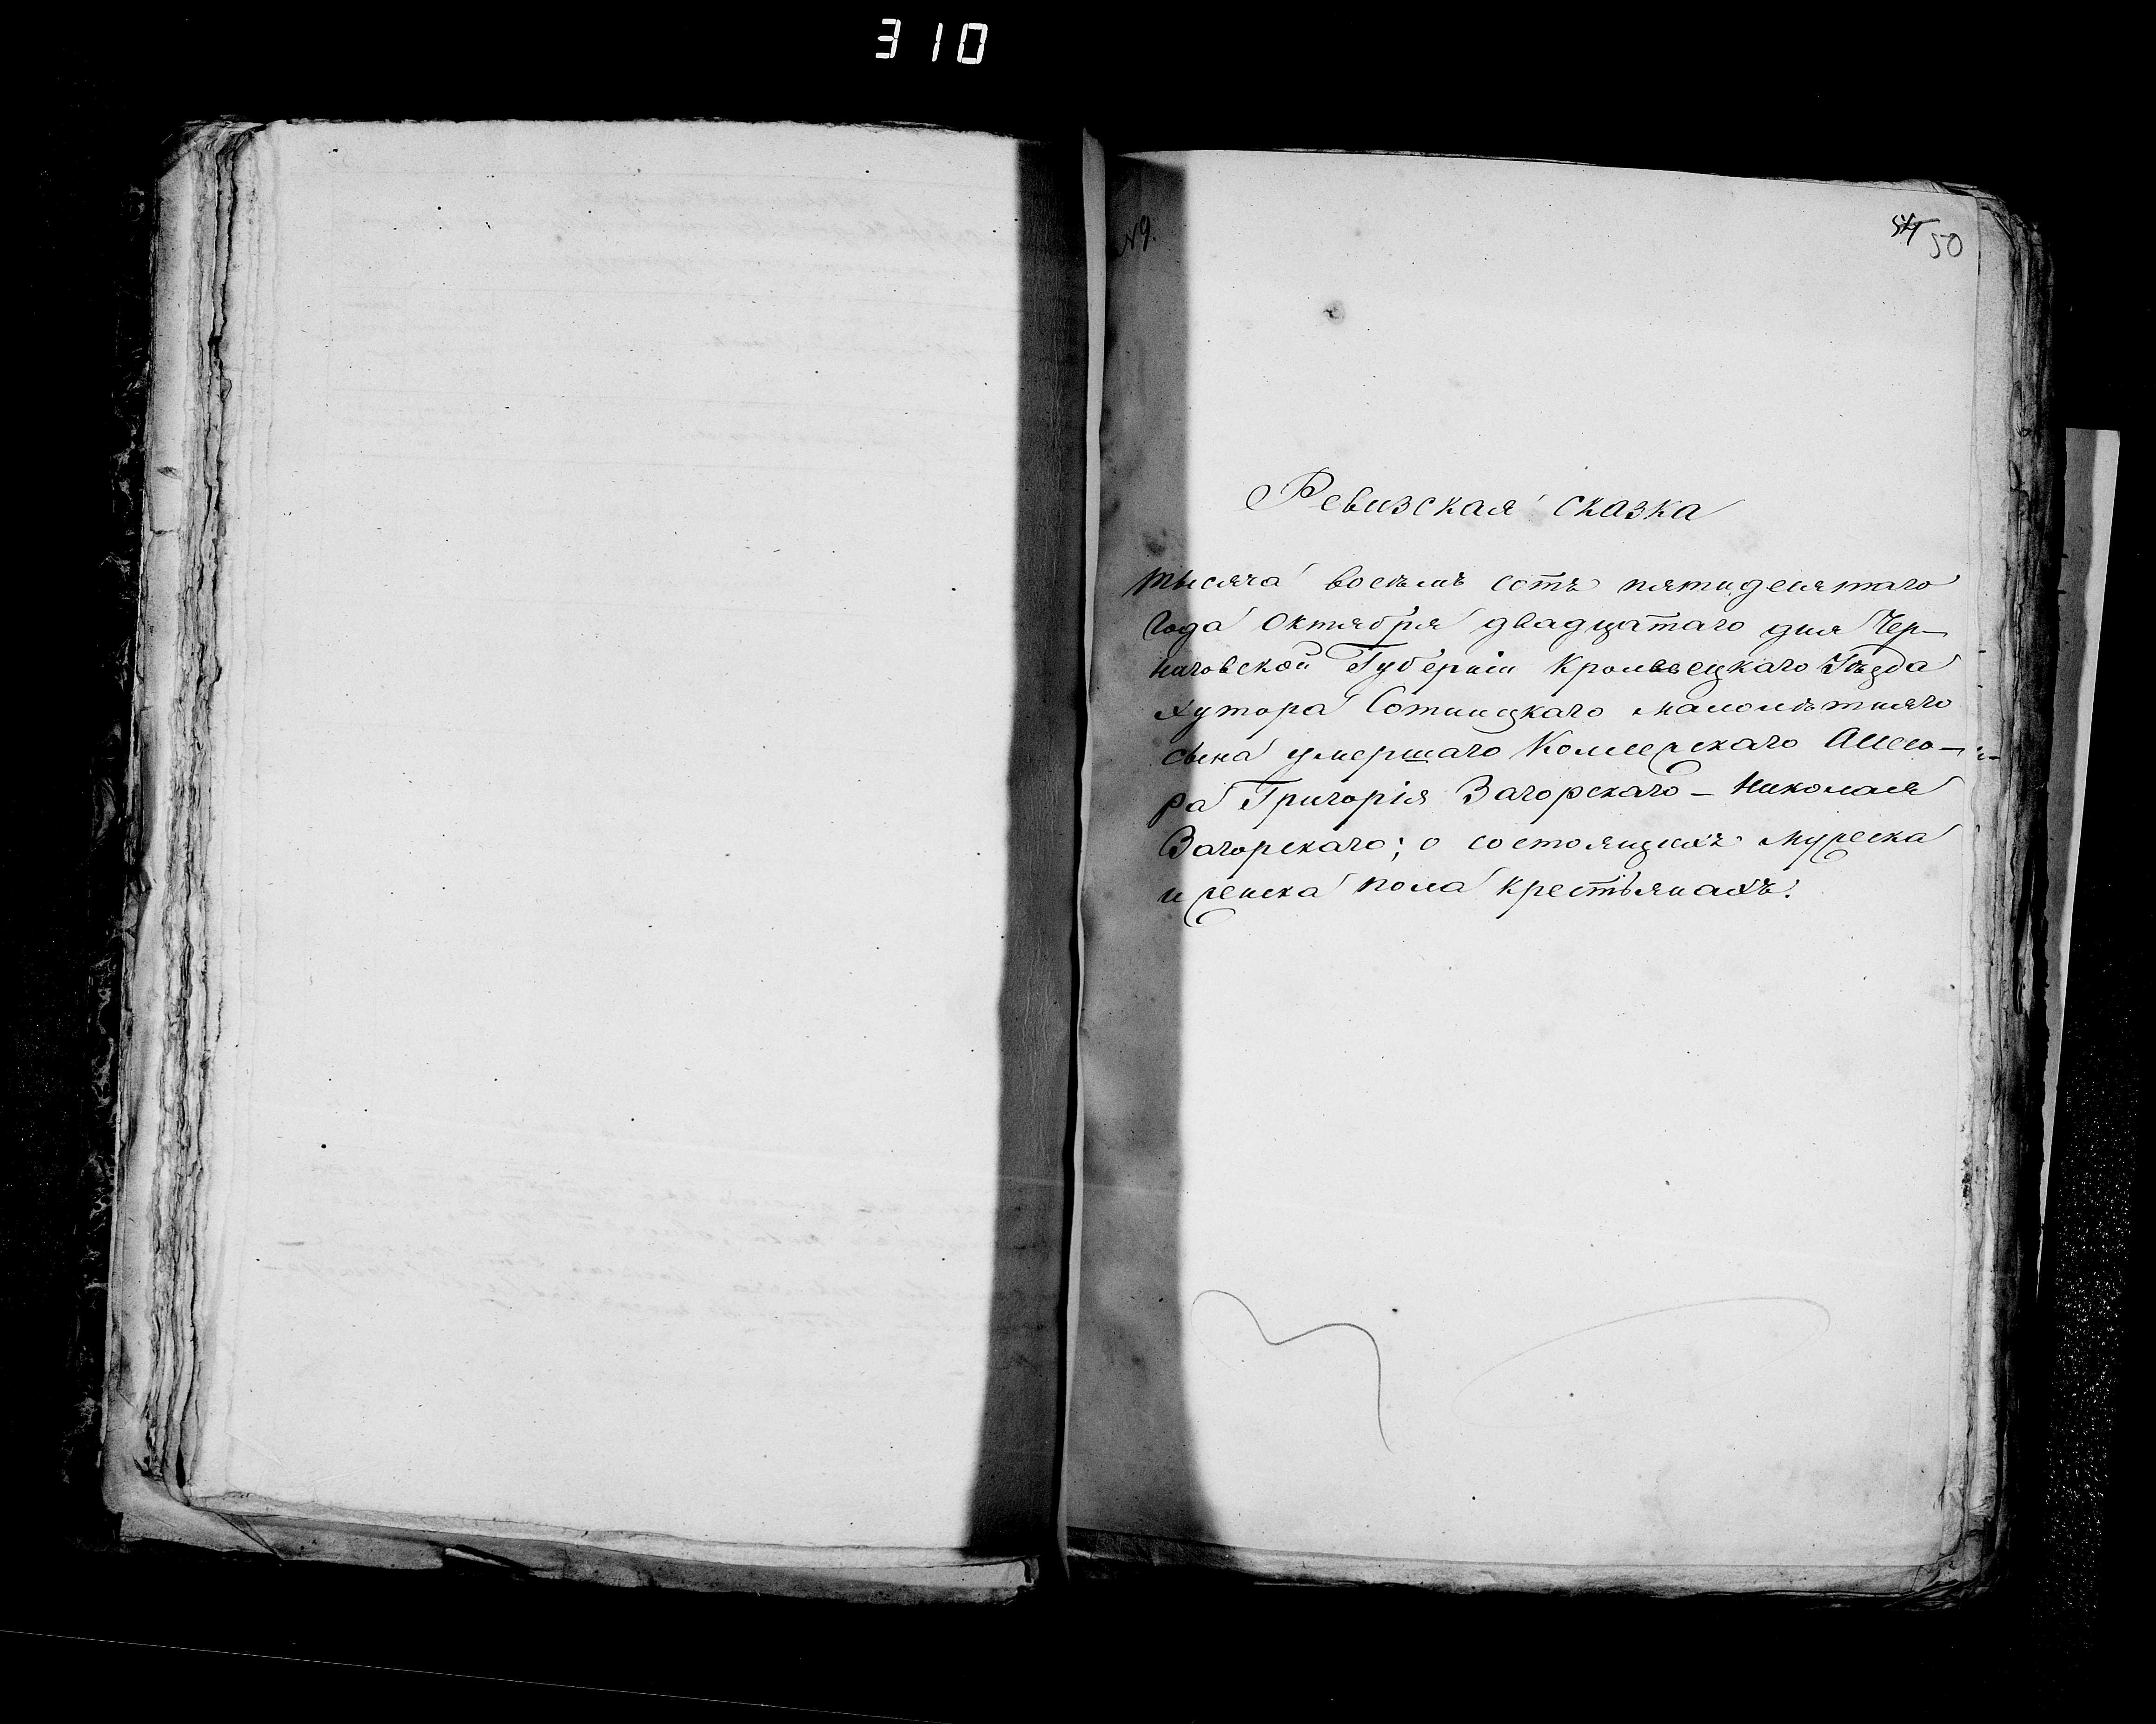 310
№9.
50
Ревизская сказка
тысяча восемь сотъ пятидесятаго
года Октября двадцатаго дня Чер-
ниговской Губерніи Кролевецкаго Уѣзда
хутора Сотницкаго малолѣтняго
сына умершаго Коллежскаго Ассесо-
ра Григорія Загорскаго - Николая
Загорскаго; о состоящихъ мужеска
и женска пола крестьянахъ.